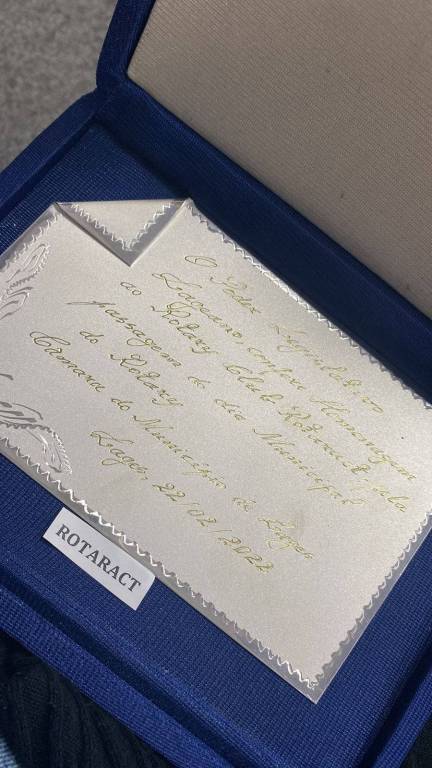 O Poder Legislativo
Lageano, confere Homenagem
ao Rotary Club Rotaract pela
passagem do dia Municipal
do Rotary
Camara do Município de Lages
Lages, 22/02/2022
ROTARACT